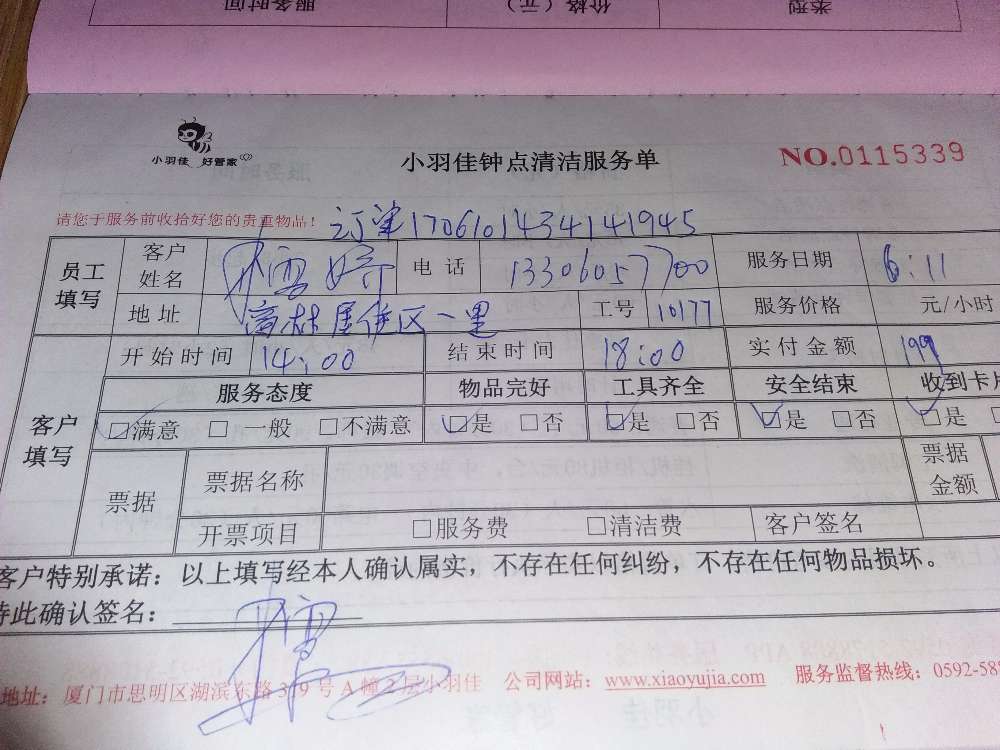 类型 价格（元） 服务时间
小羽佳 好管家
小羽佳钟点清洁服务单
NO.0115339
请您于服务前收拾好您的贵重物品！
订单1706101434141945
员工填写 客户姓名 婷 电话 13306057700 服务日期 6:11
地址 高林居住区一里 工号 10177 服务价格 元/小时
客户填写 开始时间 14:00 结束时间 18:00 实付金额 199
服务态度 物品完好 工具齐全 安全结束 收到卡片
☑满意 □一般 □不满意 ☑是 □否 ☑是 □否 ☑是 □否 ☑是
票据 票据名称 票据金额
开票项目 □服务费 □清洁费 客户签名
客户特别承诺：以上填写经本人确认属实，不存在任何纠纷，不存在任何物品损坏。
特此确认签名：
地址：厦门市思明区湖滨东路319号A幢2层小羽佳 公司网站：www.xiaoyujia.com 服务监督热线：0592-588